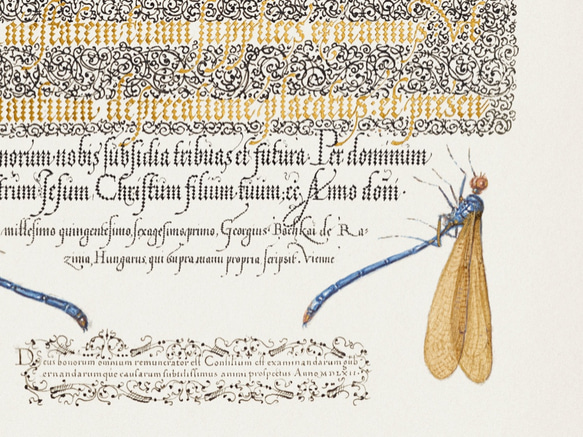 nissatam suam supplices exoramus. Vt
omnium deprecatione placatus, et presen
norum nobis subsidia tribuas et futura. Per dominum
trum Jesum Christum filium tuum, etc. Anno domi.
millesimo quingentesimo, sexagesimo, primo, Georgius Bochkai de Ra-
zinia, Hungarus, qui supra, manu propria scripsit. Vienne
Deus bonorum omnium remunerator est Consilium est examinandarum gub
ernandarumque causarum subtilissimus animi prospectus Anno MDLXII